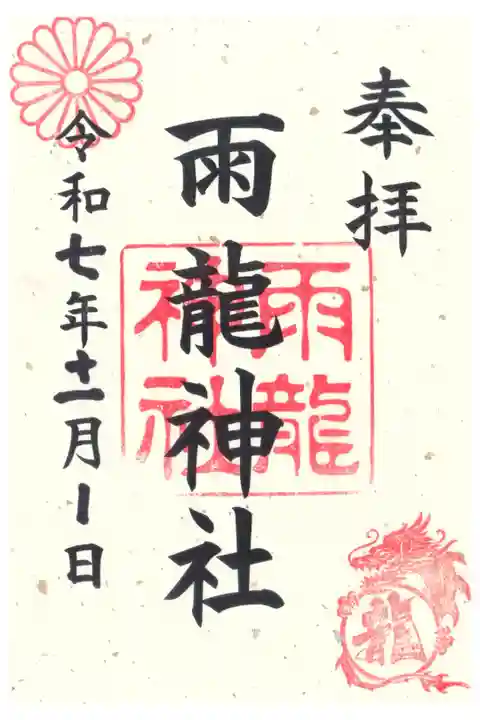 奉拝
雨龍神社
雨龍
神社
令和七年十一月1日
龍